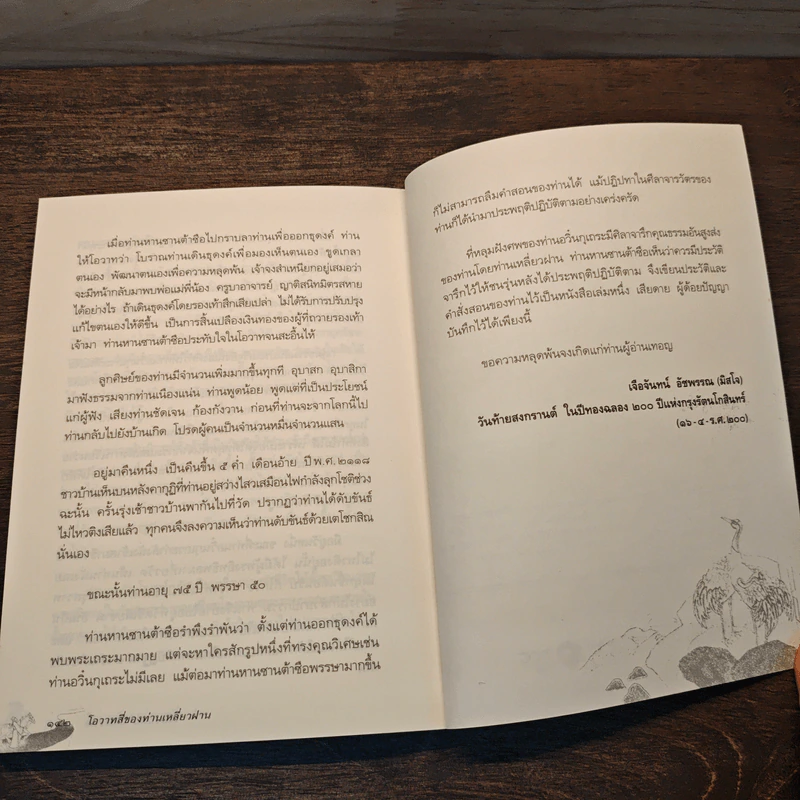 เมื่อท่านหานซานต้าซือไปกราบลาท่านเพื่อออกธุดงค์ ท่าน
ให้โอวาทว่า โบราณท่านเดินธุดงค์เพื่อมองเห็นตนเอง ขูดเกลา
ตนเอง พัฒนาตนเองเพื่อความหลุดพ้น เจ้าจงสำเหนียกอยู่เสมอว่า
จะมีหน้ากลับมาพบพ่อแม่พี่น้อง ครูบาอาจารย์ ญาติสนิทมิตรสหาย
ได้อย่างไร ถ้าเดินธุดงค์โดยรองเท้าสึกเสียเปล่า ไม่ได้รับการปรับปรุง
แก้ไขตนเองให้ดีขึ้น เป็นการสิ้นเปลืองเงินทองของผู้ที่ถวายรองเท้า
เจ้ามา ท่านหานซานต้าซือประทับใจในโอวาทจนสะอื้นไห้
ลูกศิษย์ของท่านมีจำนวนเพิ่มมากขึ้นทุกที อุบาสก อุบาสิกา
มาฟังธรรมจากท่านเนืองแน่น ท่านพูดน้อย พูดแต่ที่เป็นประโยชน์
แก่ผู้ฟัง เสียงท่านชัดเจน ก้องกังวาน ก่อนที่ท่านจะจากโลกนี้ไป
ท่านกลับไปยังบ้านเกิด โปรดผู้คนเป็นจำนวนหมื่นจำนวนแสน
อยู่มาคืนหนึ่ง เป็นคืนขึ้น ๕ ค่ำ เดือนอ้าย ปี พ.ศ. ๒๑๑๘
ชาวบ้านเห็นบนหลังคากุฏิที่ท่านอยู่สว่างไสวเสมือนไฟกำลังลุกโชติช่วง
ฉะนั้น ครั้นรุ่งเช้าชาวบ้านพากันไปที่วัด ปรากฏว่าท่านได้ดับขันธ์
ไม่ไหวติงเสียแล้ว ทุกคนจึงลงความเห็นว่าท่านดับขันธ์ด้วยเตโชกสิณ
นั่นเอง
ขณะนั้นท่านอายุ ๗๕ ปี พรรษา ๕๐
ท่านหานซานต้าซือรำพึงรำพันว่า ตั้งแต่ท่านออกธุดงค์ได้
พบพระเถระมากมาย แต่จะหาใครสักรูปหนึ่งที่ทรงคุณวิเศษเช่น
ท่านอวิ๋นกุเถระไม่มีเลย แม้ต่อมาท่านหานซานต้าซือพรรษามากขึ้น
๑๔๒ โอวาทสี่ของท่านเหลี่ยวฝาน
ก็ไม่สามารถลืมคำสอนของท่านได้ แม้ปฏิปทาในศีลาจารวัตรของ
ท่านก็ได้นำมาประพฤติปฏิบัติตามอย่างเคร่งครัด
ที่หลุมฝังศพของท่านอวิ๋นกุเถระมีศิลาจารึกคุณธรรมอันสูงส่ง
ของท่านโดยท่านเหลี่ยวฝาน ท่านหานซานต้าซือเห็นว่าควรมีประวัติ
จารึกไว้ให้ชนรุ่นหลังได้ประพฤติปฏิบัติตาม จึงเขียนประวัติและ
คำสั่งสอนของท่านไว้เป็นหนังสือเล่มหนึ่ง เสียดาย ผู้ด้อยปัญญา
บันทึกไว้ได้เพียงนี้
ขอความหลุดพ้นจงเกิดแก่ท่านผู้อ่านเทอญ
เจือจันทน์ อัชพรรณ (มิสโจ)
วันท้ายสงกรานต์ ในปีทองฉลอง ๒๐๐ ปีแห่งกรุงรัตนโกสินทร์
(๑๖-๔-ร.ศ.๒๐๐)